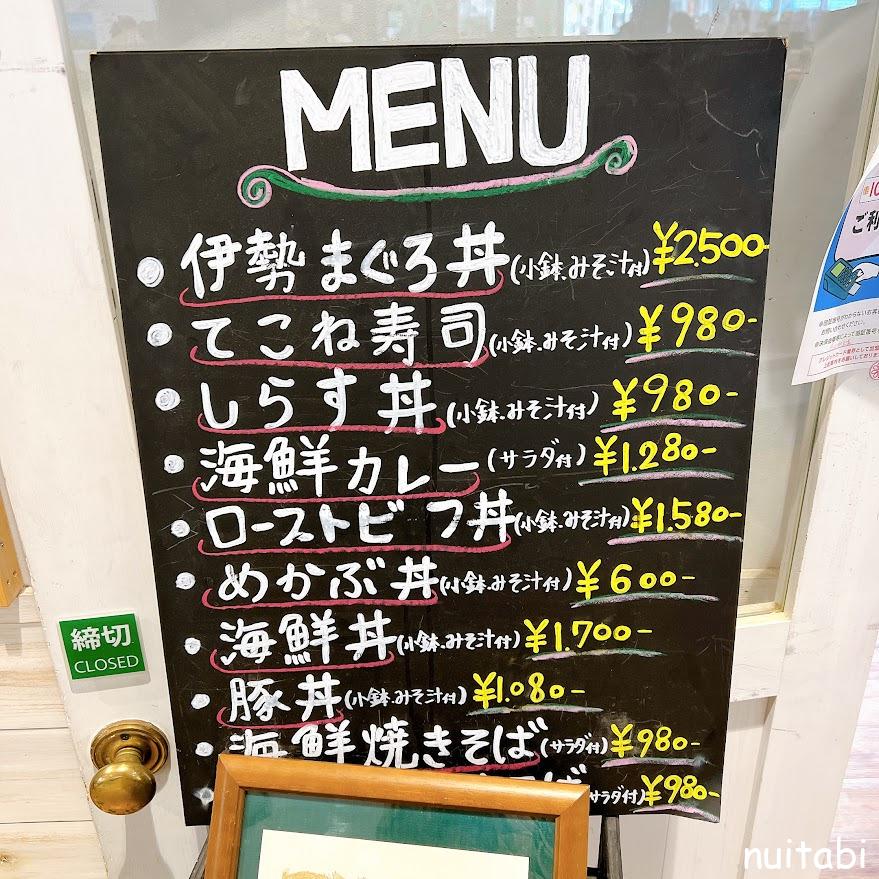 MENU
伊勢まぐろ丼(小鉢.みそ汁付)¥2.500-
てこね寿司(小鉢.みそ汁付)¥980-
しらす丼(小鉢.みそ汁付)¥980-
海鮮カレー(サラダ付)¥1.280-
ローストビーフ丼(小鉢.みそ汁付)¥1.580-
めかぶ丼(小鉢.みそ汁付)¥600-
海鮮丼(小鉢.みそ汁付)¥1.700-
豚丼(小鉢.みそ汁付)¥1.080-
海鮮焼きそば(サラダ付)¥980-
そば(サラダ付)¥980-
締切
CLOSED
ご利
nuitabi